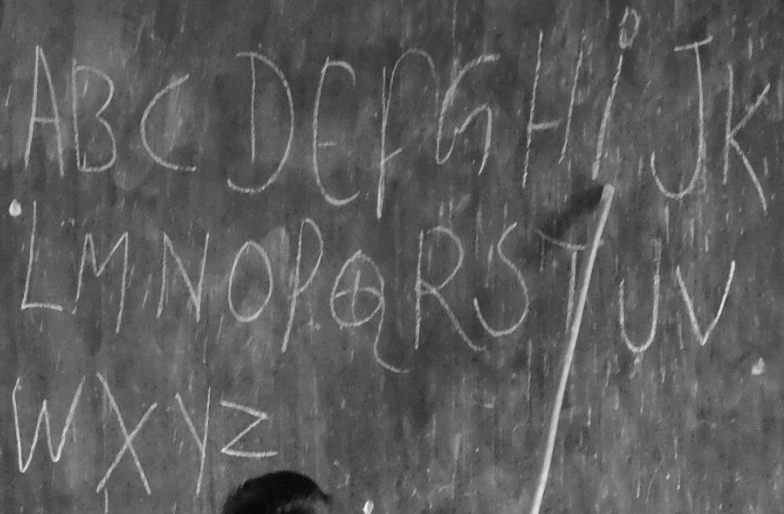 A B C D E F G H i J K
L M N O P Q R S T U V
W X Y Z